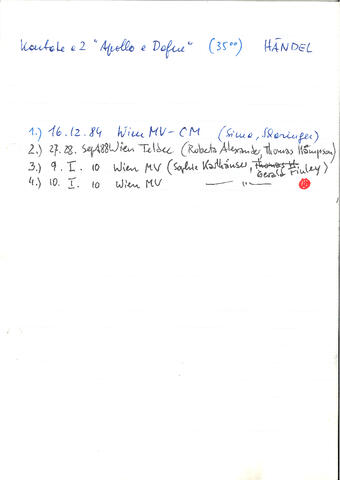 Kantate a 2 "Apollo e Dafne" (35°°) HÄNDEL
1.) 16.12.84 Wien MV-CM (Sima, Scharinger)
2.) 27. 28. Sept 88 Wien Teldec (Roberta Alexander, Thomas Hampson)
3.) 9. I. 10 Wien MV (Sophie Karthäuser, Thomas H Gerald Finley)
4.) 10. I. 10 Wien MV — " —